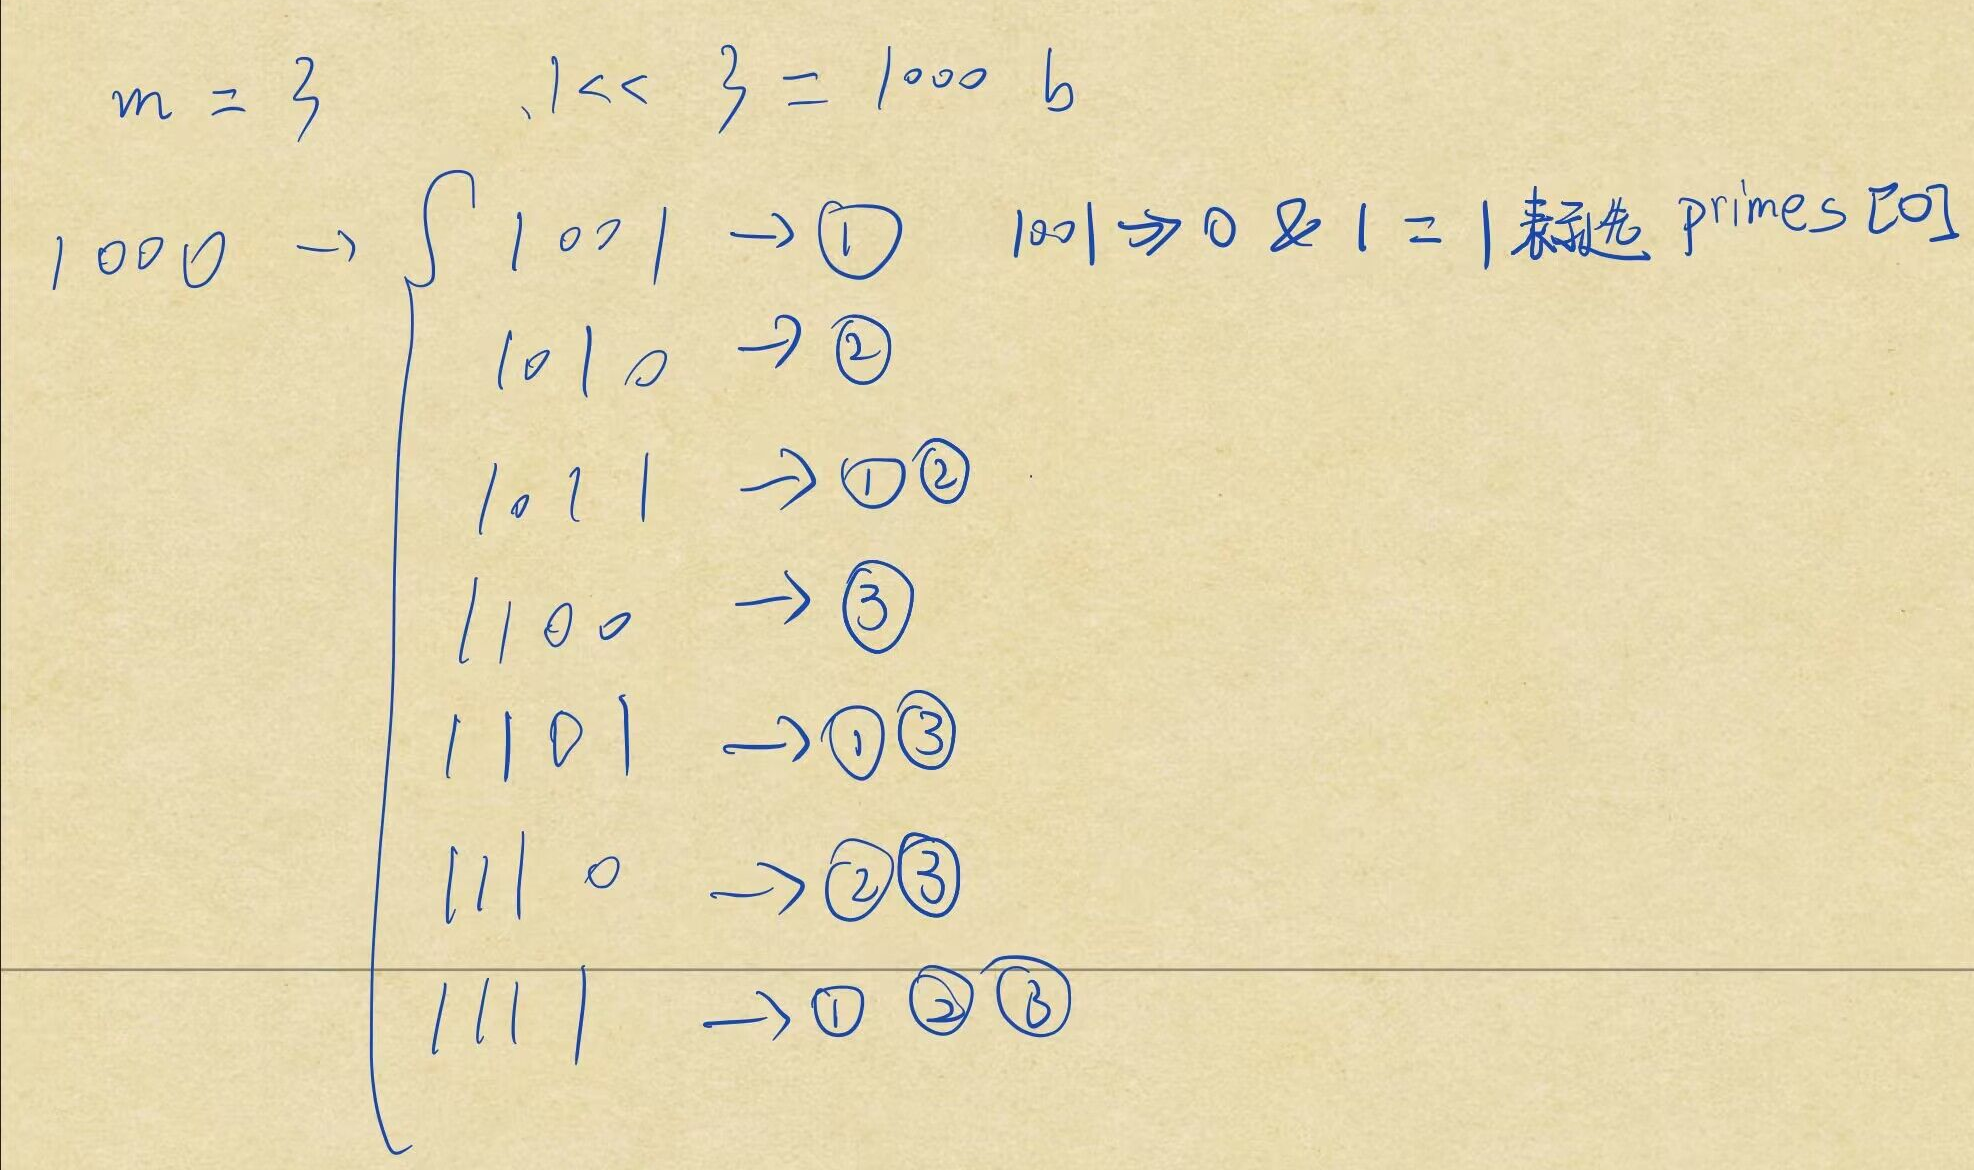 m = 3 1<< 3 = 1000 b
1000 → 1001 → ① 1001 >> 0 & 1 = 1 表示选 primes[0]
1010 → ②
1011 → ①②
1100 → ③
1101 → ①③
1110 → ②③
1111 → ① ② ③